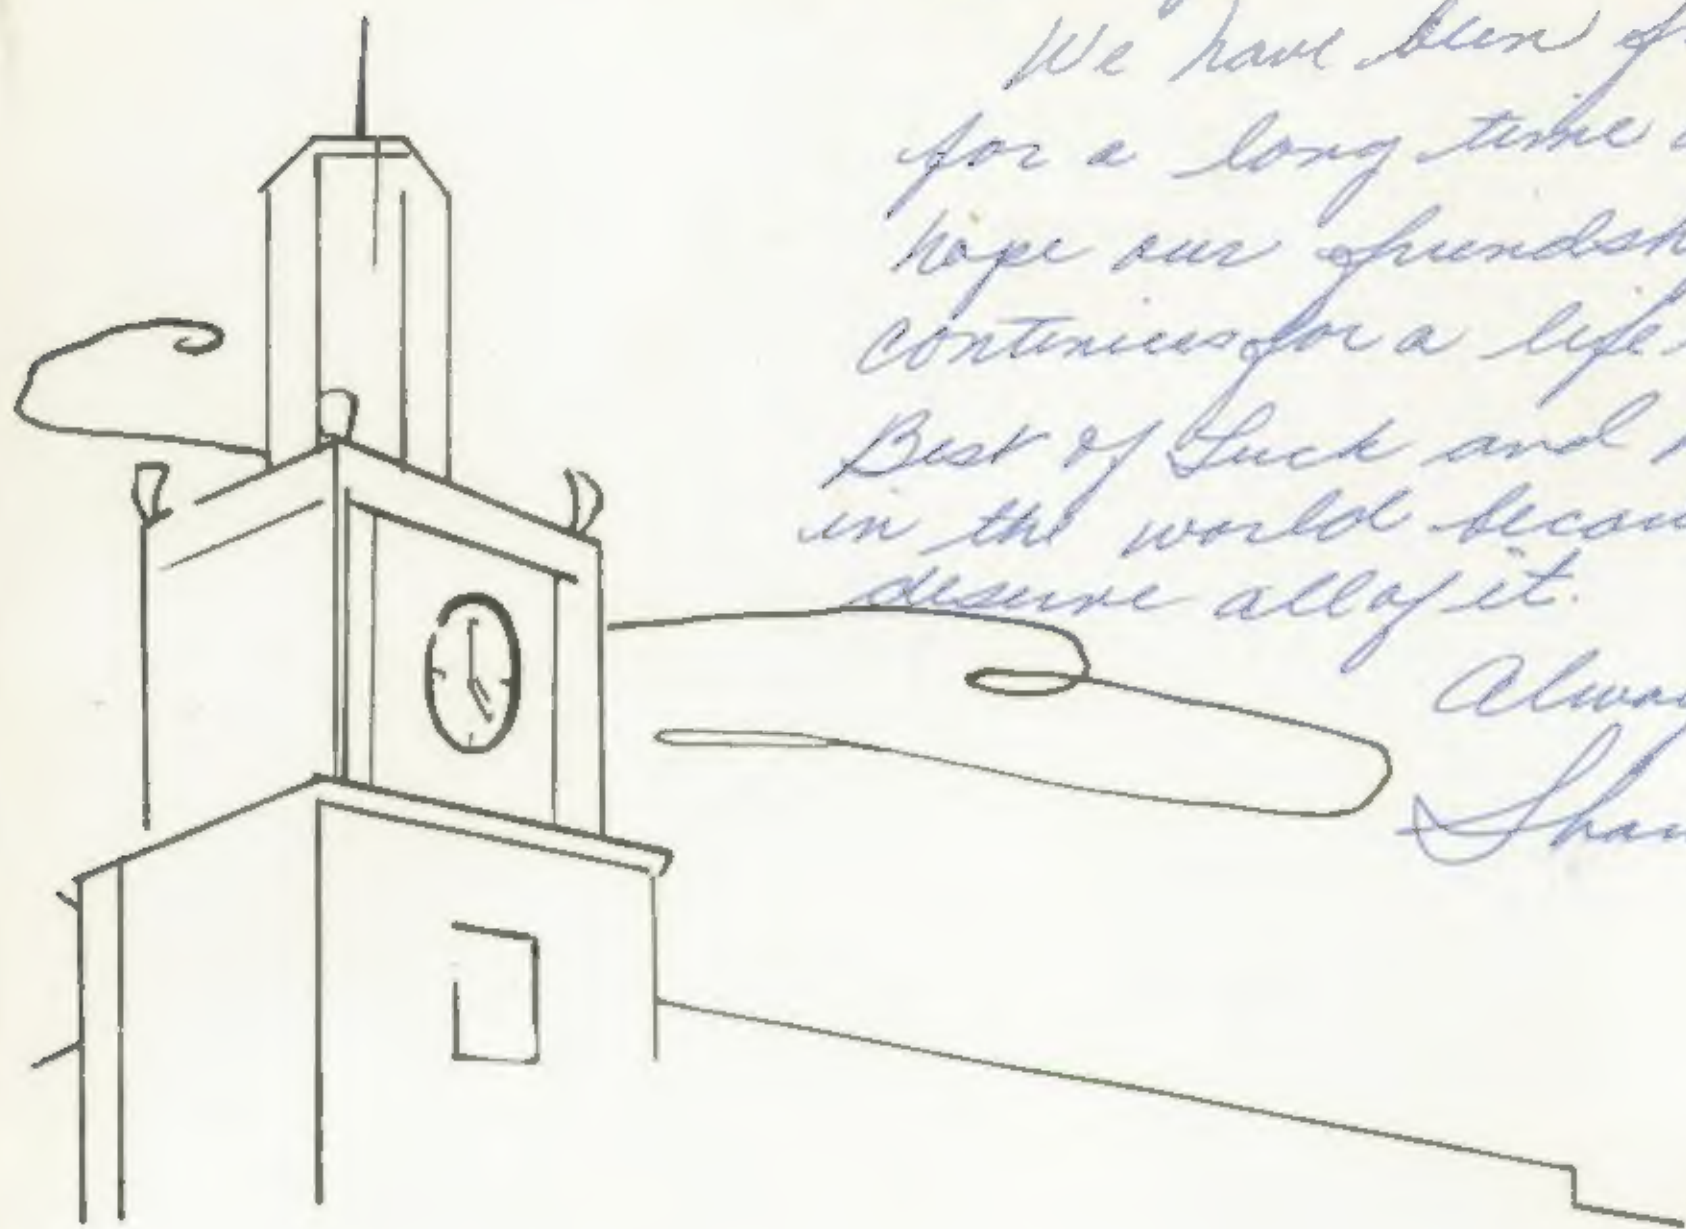 We have been
for a long time
hope our friendsh
continues for a life
Best of Luck and
in the world becau
deserve all of it.
Alway
Shar